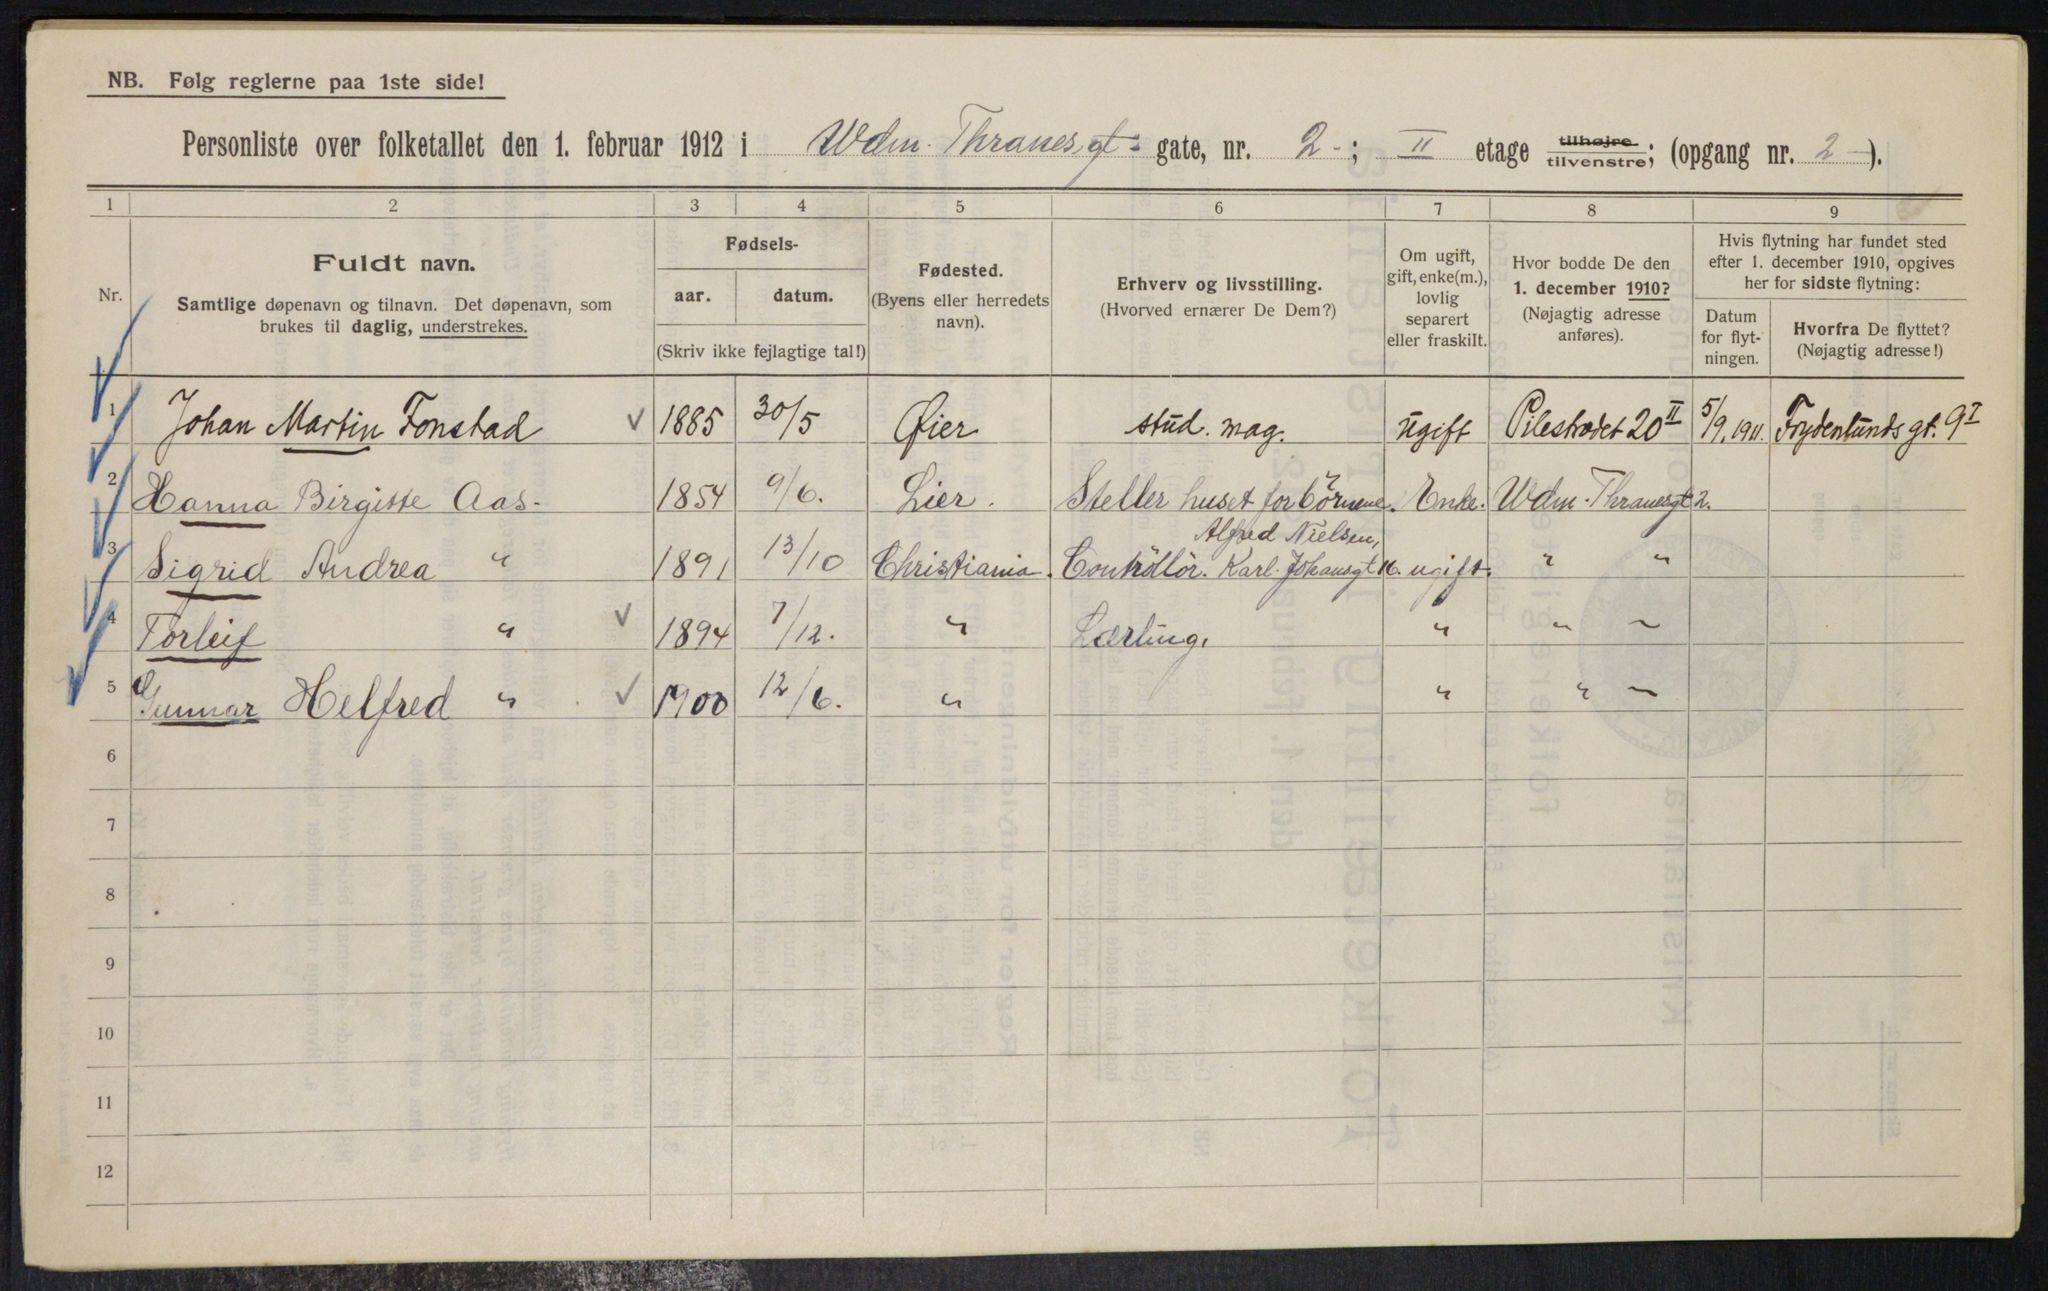 NB. Følg reglerne paa 1ste side!
Personliste over folketallet den 1. februar 1912 i Wdm. Thranes gt gate, nr. 2; II etage tilhøjre tilvenstre; (opgang nr. 2).
1 2 3 4 5 6 7 8 9
Nr.
Fuldt navn.
Samtlige døpenavn og tilnavn. Det døpenavn, som
brukes til daglig, understrekes.
Fødsels-
aar. datum.
(Skriv ikke fejlagtige tal!)
Fødested.
(Byens eller herredets
navn).
Erhverv og livsstilling.
(Hvorved ernærer De Dem?)
Om ugift,
gift, enke(m.),
lovlig
separert
eller fraskilt.
Hvor bodde De den
1. december 1910?
(Nøjagtig adresse
anføres).
Hvis flytning har fundet sted
efter 1. december 1910, opgives
her for sidste flytning:
Datum
for flyt-
ningen.
Hvorfra De flyttet?
(Nøjagtig adresse!)
1 Johan Martin Fonstad 1885 30/5 Øier stud. mag. ugift Pilestrædet 20 II 5/9. 1911. Frydenlunds gt. 9 I
2 Hanna Birgitte Aas- 1854 9/6. Lier. Steller huset for börnene. Enke. Wdm. Thranesgt 2.
Alfred Nielsen,
3 Sigrid Andrea " 1891 13/10 Christiania. Contröllör. Karl. Johansgt 16. ugift. " "
4 Torleif " 1894 7/12. " Lærling. " " "
5 Gunnar Helfred " 1900 12/6. " " " "
6
7
8
9
10
11
12